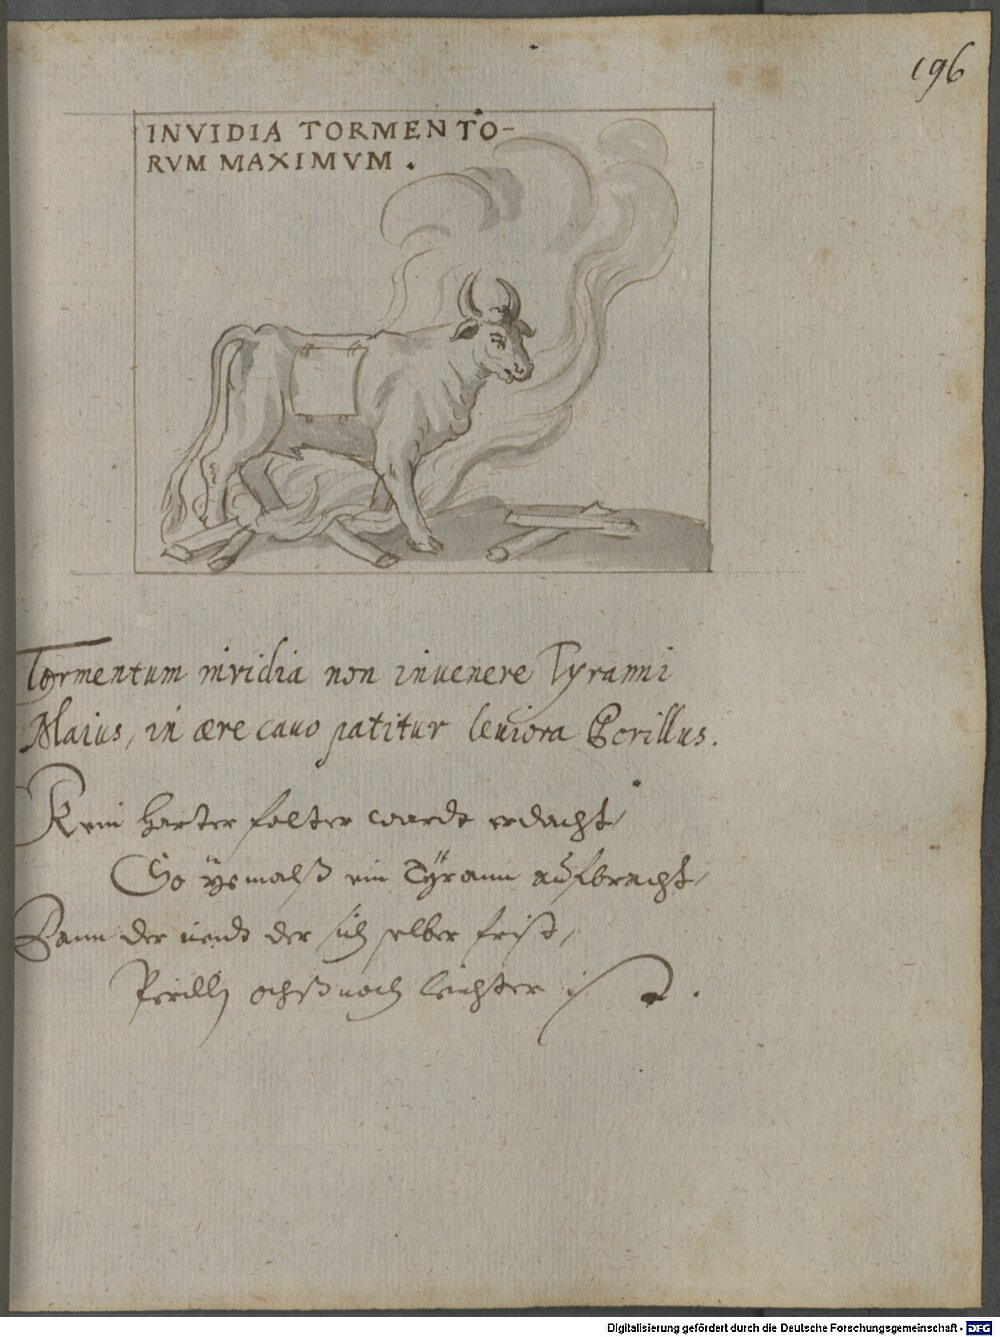 196
INVIDIA TORMENTO-
RVM MAXIMVM.
Tormentum invidia non invenere Tyranni
Maius, in ære cavo patitur leviora Perillus.
Kein harter folter wardt erdacht,
So ÿemalß ein Tÿrann aŭfbracht,
Dann der neidt der sich selber frist,
Perilli ochß noch leichter ist.
Digitalisierung gefördert durch die Deutsche Forschungsgemeinschaft - DFG